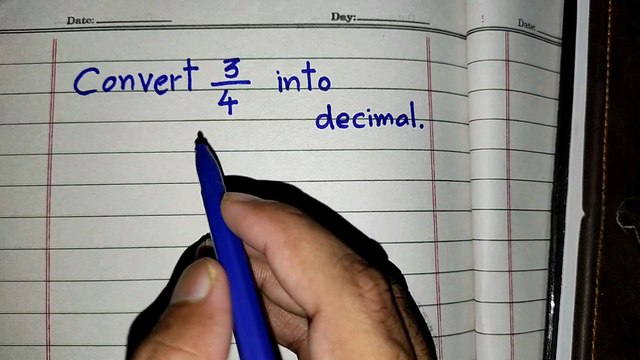 Date: Day: Date:
Convert 3/4 into
decimal.